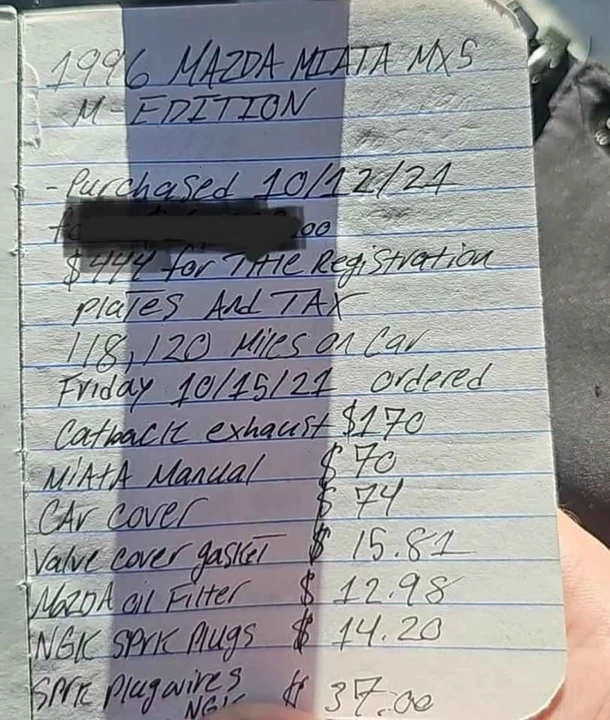 1996 MAZDA MIATA MX5
M-EDITION
- Purchased 10/12/21
00
$444 for Title Registration
Plates And TAX
118,120 Miles on Car
Friday 10/15/21 ordered
Catback exhaust $170
MiAtA Manual $ 70
CAr cover $ 74
Valve cover gasket $ 15.81
MaZDA oil Filter $ 12.98
NGK SPrk Plugs $ 14.20
SPrk Plug wires $ 37.00
NGK